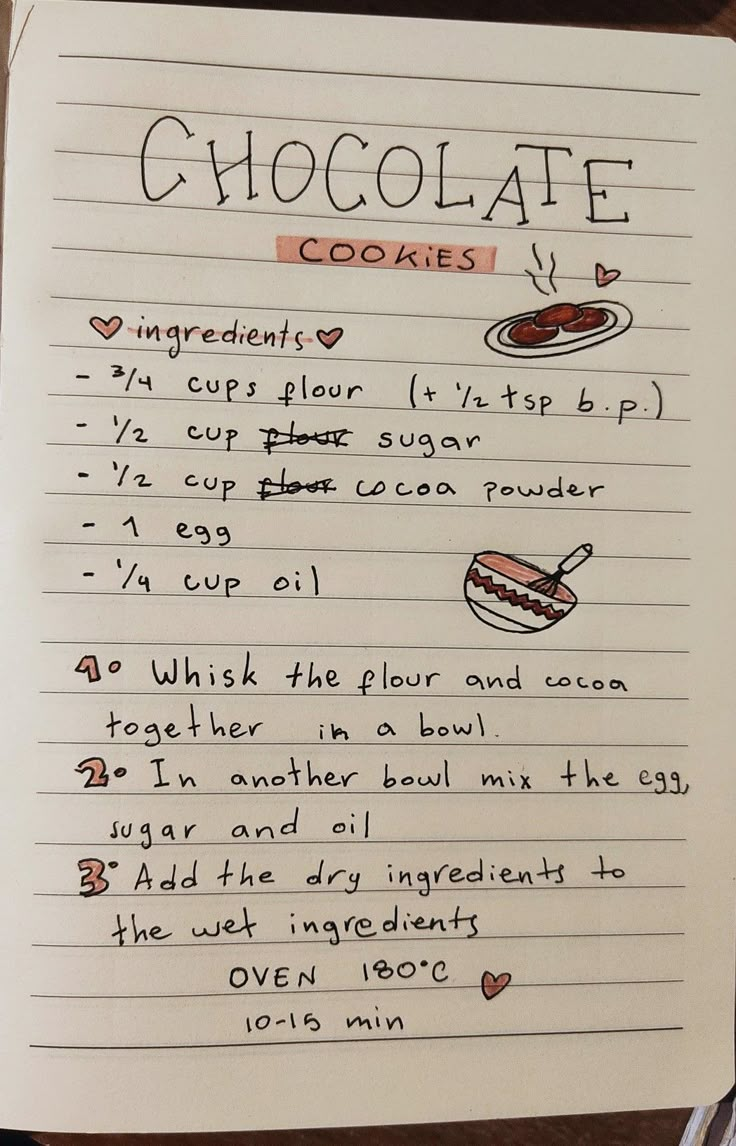 CHOCOLATE
COOKiES
ingredients
- 3/4 cups flour (+ 1/2 tsp b.p.)
- 1/2 cup flour sugar
- 1/2 cup flour cocoa powder
- 1 egg
- 1/4 cup oil
1. Whisk the flour and cocoa
together in a bowl.
2. In another bowl mix the egg,
sugar and oil
3. Add the dry ingredients to
the wet ingredients
OVEN 180°C
10-15 min